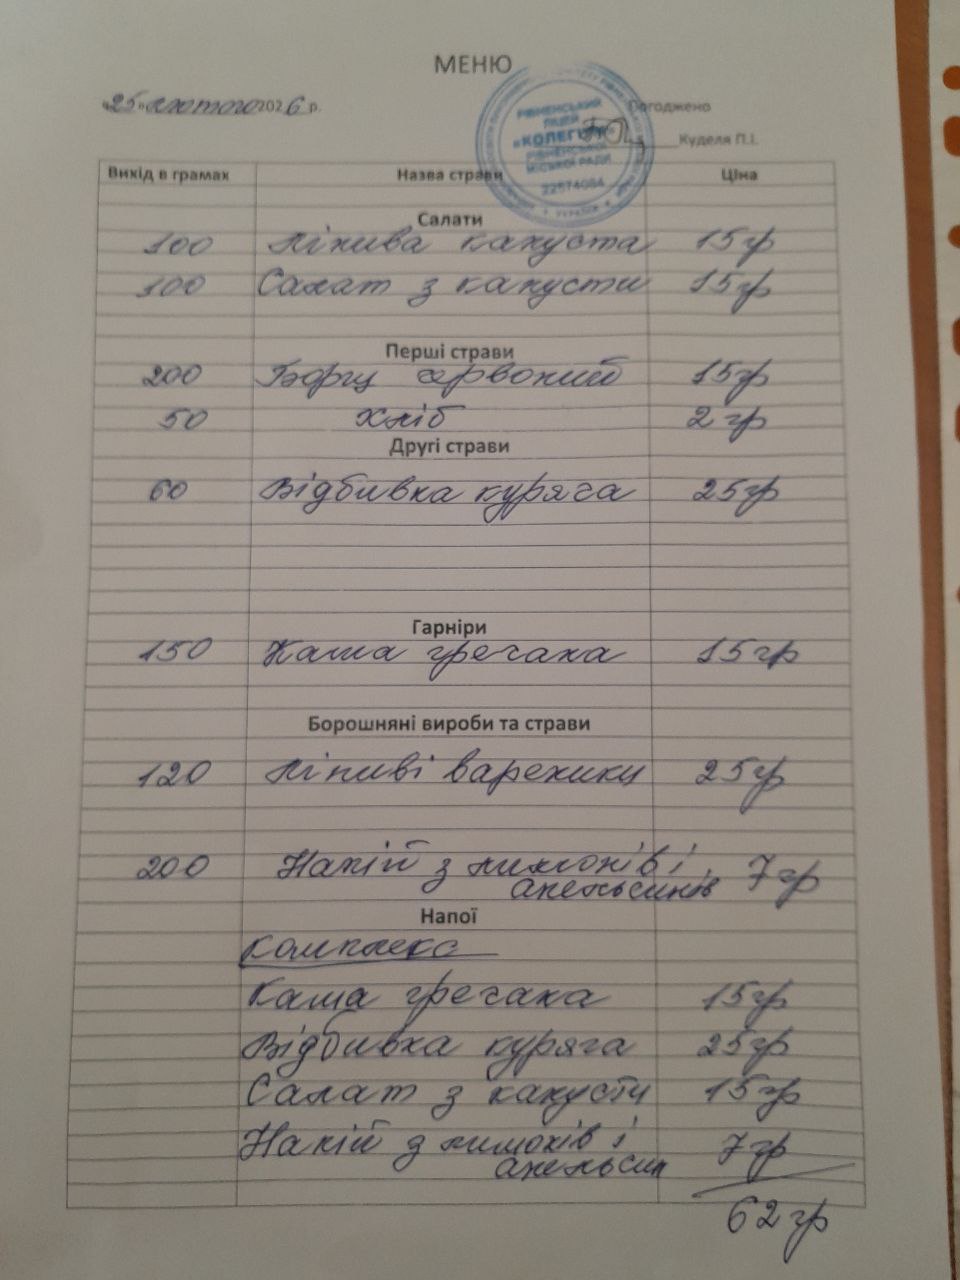 МЕНЮ
«25» лютого 2026 р.
Погоджено
Куделя П.І.
РІВНЕНСЬКИЙ
ЛІЦЕЙ
«КОЛЕГІУМ»
РІВНЕНСЬКОЇ
МІСЬКОЇ РАДИ
22574084
Вихід в грамах Назва страви Ціна
Салати
100 Лінива капуста 15гр
100 Салат з капусти 15гр
Перші страви
200 Борщ червоний 15гр
50 Хліб 2 гр
Другі страви
60 Відбивка куряча 25гр
Гарніри
150 Каша гречана 15гр
Борошняні вироби та страви
120 Ліниві вареники 25гр
200 Напій з лимонів і
апельсинів 7 гр
Напої
Комплекс
Каша гречана 15гр
Відбивка куряча 25гр
Салат з капусти 15гр
Напій з лимонів і
апельсин 7гр
62 гр